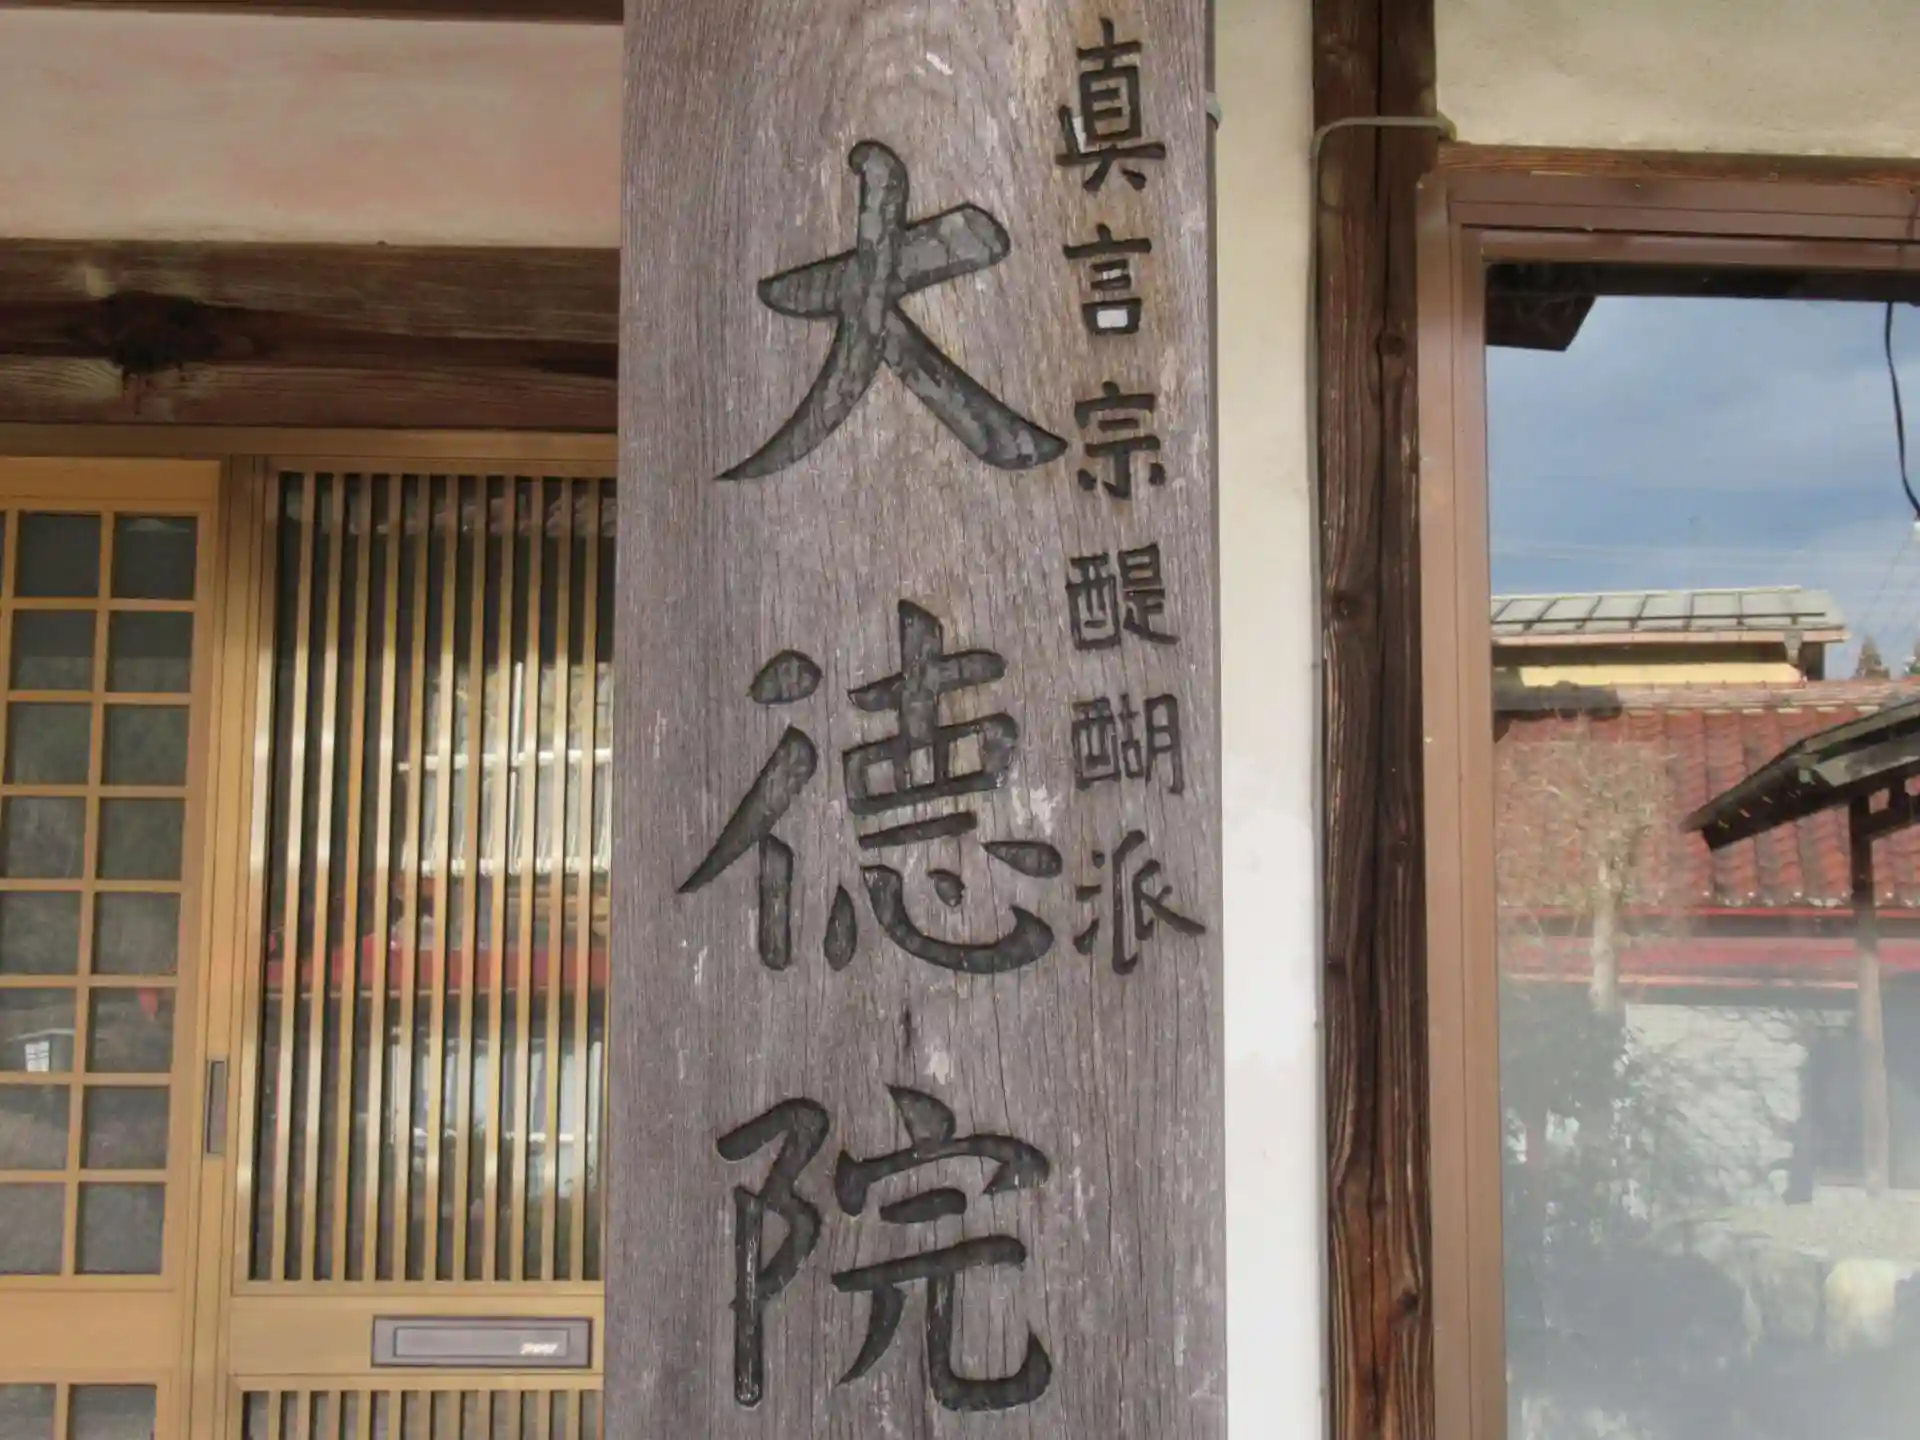 真言宗醍醐派
大徳院